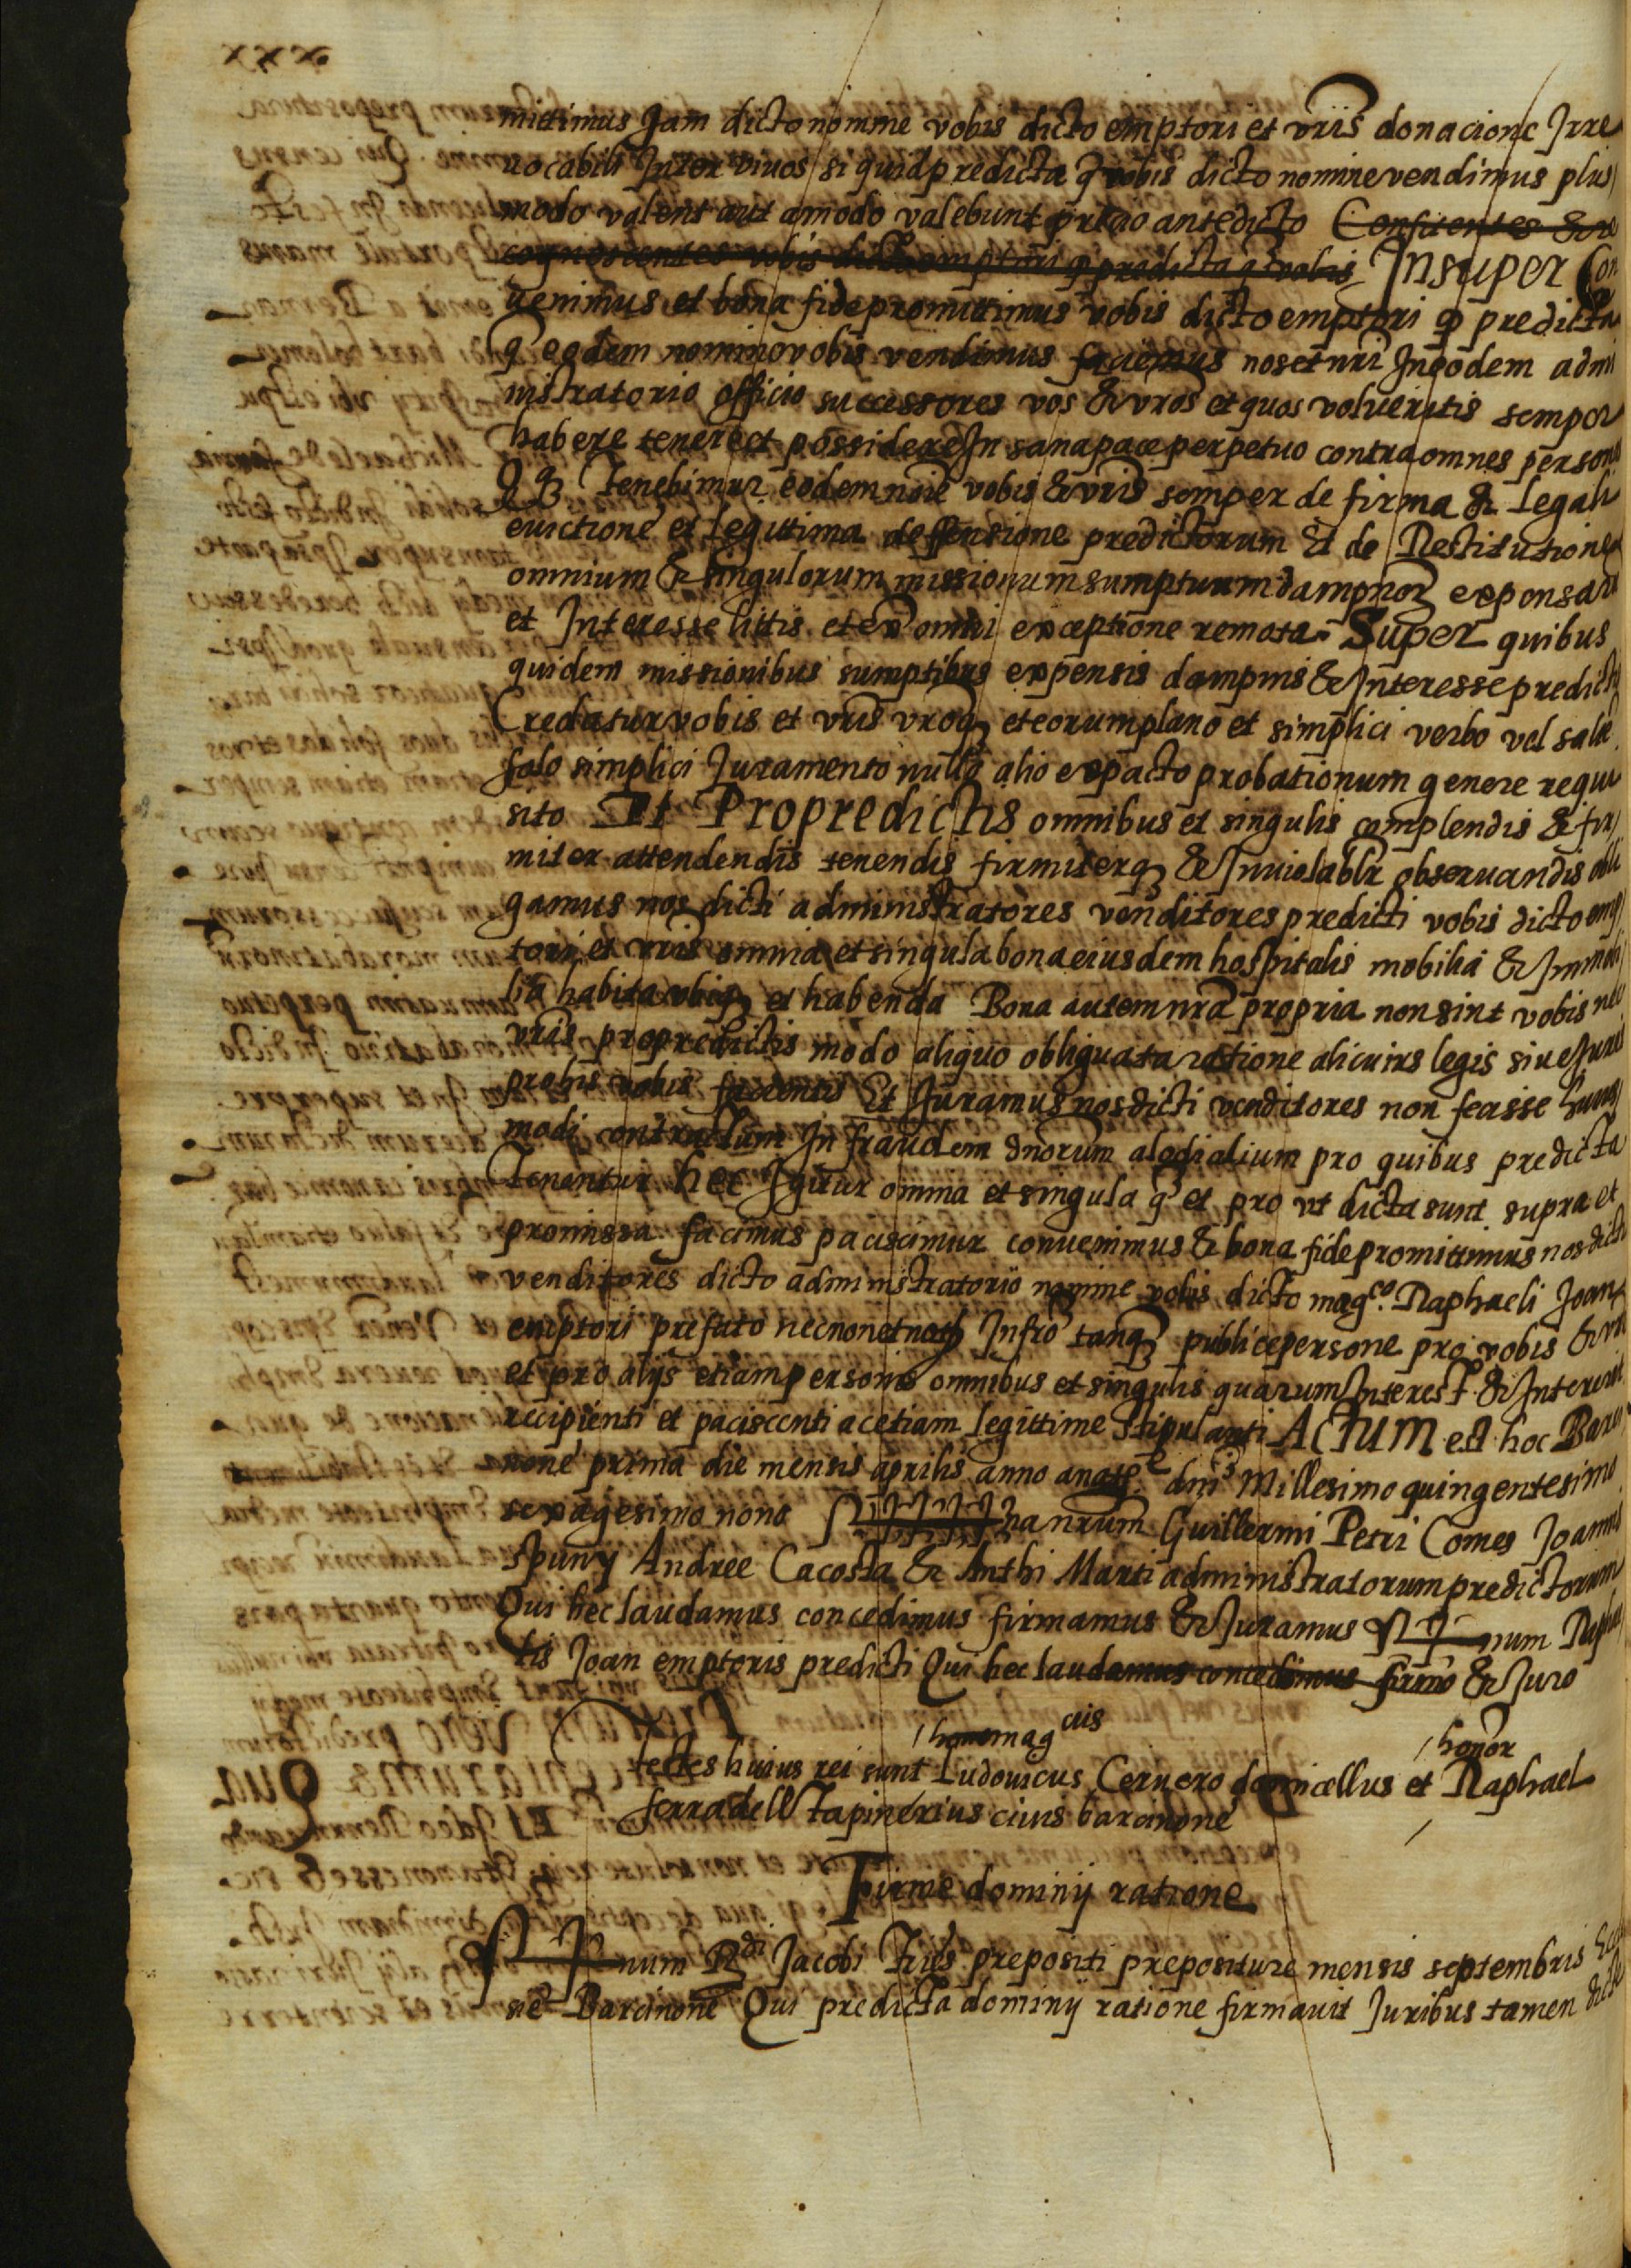 xxx
mittimus Jam dicto nomine vobis dicto emptori et vris donacione Irre
uocabili Inter viuos si quid predicta q vobis dicto nomine vendimus plus
modo valent aut amodo valebunt precio antedicto Confitentes & re
cognoscentes vobis dicto emptori q predicta q vobis Insuper Con
uenimus et bona fide promittimus vobis dicto emptori q predicta
q eodem nomine vobis vendimus faciemus nos et nri In eodem admi
nistratorio officio successores vos & vros et quos volueritis semper
habere tenere et possidere In sana pace perpetuo contra omnes personas
Tenebimur eodem noie vobis & vris semper de firma & Legali
euictione et Legittima deffensione predictorum Et de Restitutione
omnium & singulorum missionum sumptuum dampnor expensaru
et Interesse littis et ex omni exceptione remota. Super quibus
quidem missionibus sumptibus expensis dampnis & Interesse predictis
Credatur vobis et vris vroq et eorum plano et simplici verbo vel
solo simplici Juramento nullo alio ex pacto probationum genere requi
sito Et Pro predictis omnibus et singulis complendis & fir
miter attendendis tenendis firmiterq & Inuiolablr obseruandis obli
gamus nos dicti administratores venditores predicti vobis dicto emp
tori et vris omnia et singula bona eiusdem hospitalis mobilia & Immobi
lia habita ubiq et habenda Bona autem nra propria non sint vobis nec
vris pro predictis modo aliquo obligata ratione alicuius legis siue Juris
pro his vobis facientis Et Juramus nos dicti venditores non fecisse huius
modi contractum In fraudem dnorum alodialium pro quibus predicta
Tenentur hec Igitur omnia et singula q et pro vt dicta sunt supra et
promissa facimus paciscimur conuenimus & bona fide promittimus nos dicti
venditores dicto administratorio nomine vobis dicto mag.co Raphaeli Joan
emptori prefato necnon et noto Infro tanq publice persone pro vobis & vris
et pro alijs etiam personis omnibus et singulis quarum Interest & Intererit
recipienti et paciscenti ac etiam Legittime Stipulanti ACTUM est hoc Barci
none prima die mensis aprilis anno a natte dni Millesimo quingentesimo
sexagesimo nono S na nrum Guillermi Petri Comes Joannis
Spuny Andree Cacosta & Anthi Marti administratorum predictorum
Qui hec laudamus concedimus firmamus & Juramus S num Rapha
lis Joan emptoris predicti Qui hec laudamus concedimus firmo & Juro
hono mag cus honor
Testes huius rei sunt Ludouicus Ceruero domicellus et Raphael
ferradell Tapinerius ciuis barcinone
Firme dominij ratione
S num Rdi Jacobi prepositi prepositure mensis septembris Eccle
sie Barcinone Qui predicta dominij ratione firmauit Juribus tamen dicte